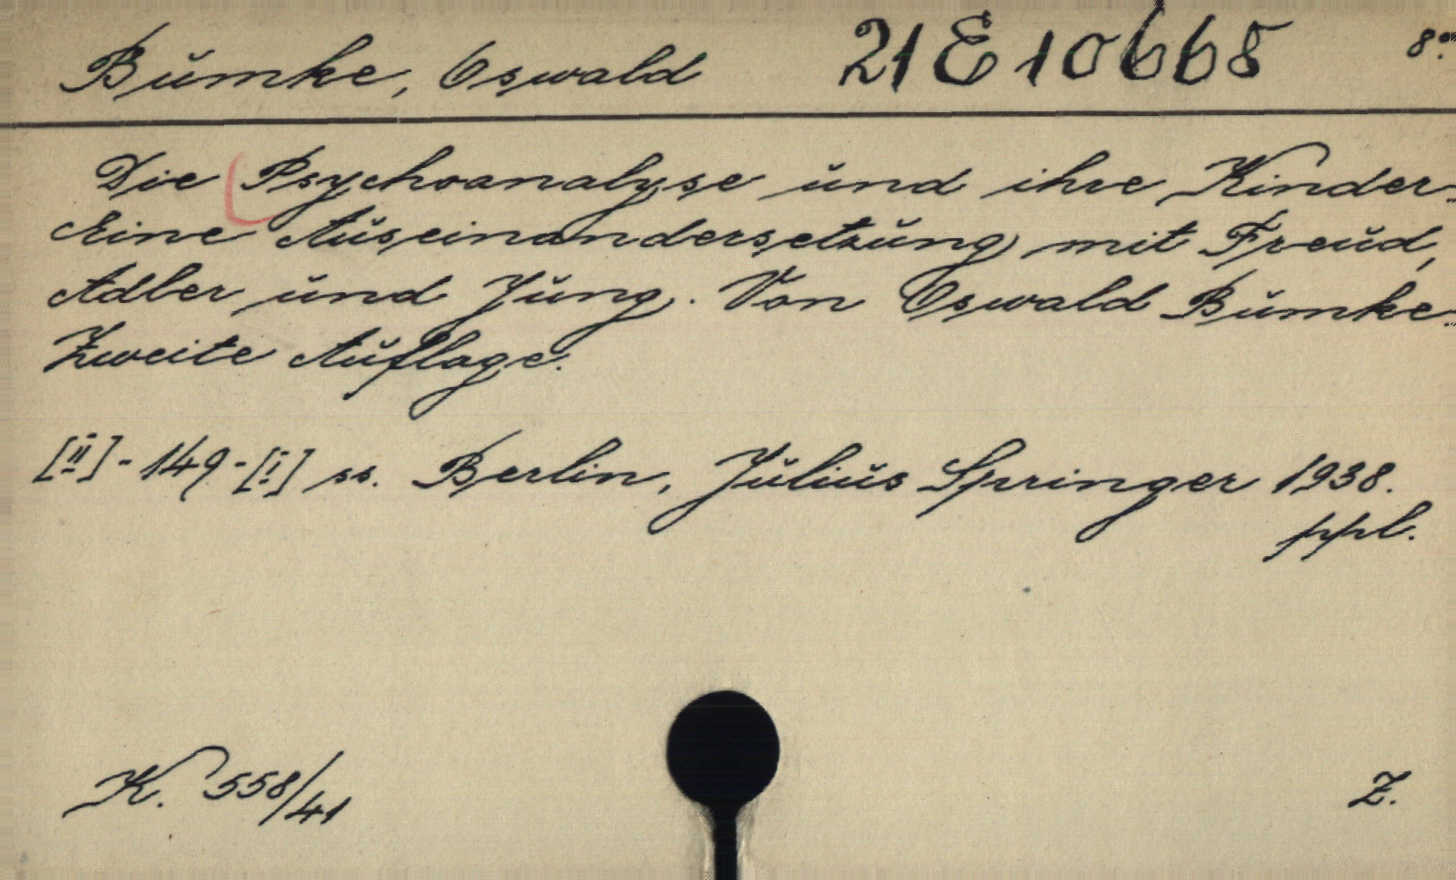 Bumke, Oswald 21 E 10665 8°.
Die Psychoanalyse und ihre Kinder.
Eine Auseinandersetzung mit Freud,
Adler und Jung. Von Oswald Bumke.
Zweite Auflage.
[ii]-149-[i] ss. Berlin, Julius Springer 1938.
ppl.
K. 558/41 Z.